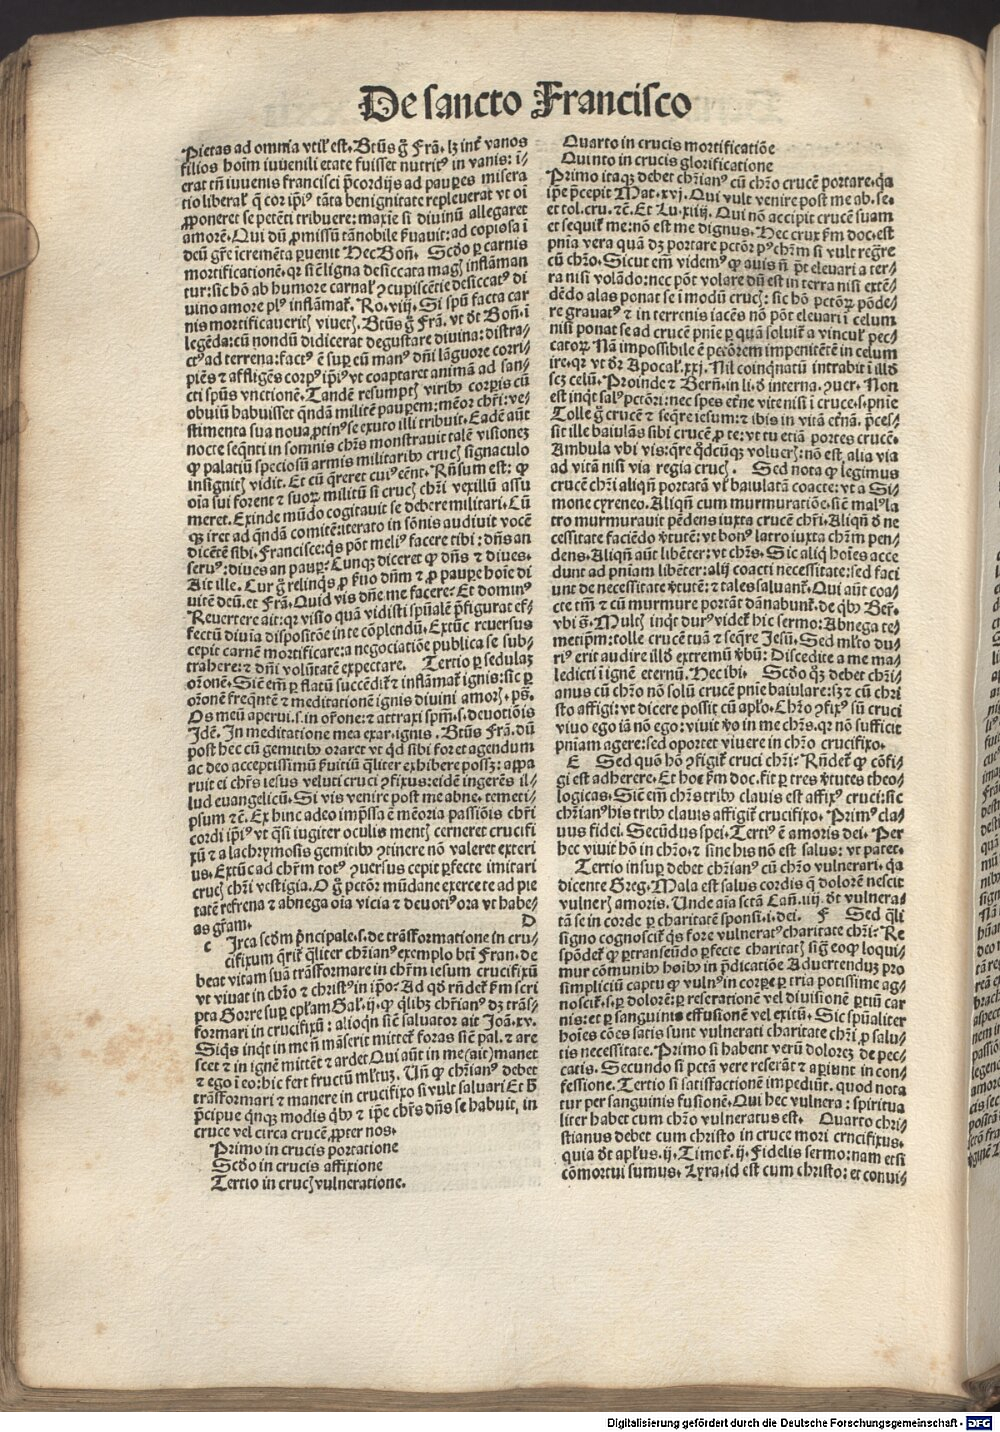 De sancto Francisco
Pietas ad omnia vtil' est. Btūs ḡ Frā. lz int̄ vanos
filios hoīm iuuenili etate fuisset nutrit⁹ in vanis: i-
erat tn̄ iuuenis francisci p̄cordijs ad paupes misera
tio liberal' q̄ cor ip̄i⁹ tāta benignitate repleuerat vt oī
ꝓponeret se petēti tribuere: maxīe si diuinū allegaret
amorē. Qui dū ꝓmissū tā nobile ẜuauit: ad copiosa ī
deū gr̄e icremēta ꝑuenit Hec Boñ. Scd̄o ꝑ carnis
mortificationē. qr sic̄ ligna desiccata mag̣ inflāman
tur: sic hō ab humore carnal' ꝯcupiscētie desiccat⁹ di
uino amore pl⁹ inflāmat̄. Ro. viij. Si spū facta car
nis mortificaueritꝭ viuetꝭ. Btūs ḡ Frā. vt dt Boñ. ī
legēda: cū nondū didicerat degustare diuina: distra-
ct⁹ ad terrena: fact⁹ ē suꝑ eū man⁹ dn̄i lāguore corri-
piēs ⁊ affligēs corp⁹ ip̄i⁹ vt coaptaret animā ad san-
cti spūs vnctionē. Tandē resumptꝭ virib⁹ corꝑis cū
obuiū habuisset qndā militē pauꝑem: mēor chri: ve-
stimenta sua noua ꝓtin⁹ se exuto illi tribuit. Eadē aūt
nocte seqn̄ti in somnis chr̄s monstrauit talē visionez
ꝙ palatiū speciosū armis militarib⁹ crucꝭ signaculo
insignitꝭ vidit. Et cū q̄reret cui⁹ eēnt. Rn̄sum est: ꝙ
oīa sui forent ⁊ suoꝝ militū si crucꝭ chri vexillū assu
meret. Exinde mūdo cogitauit se debere militari. Cū
qꝫ iret ad qndā comitē: iterato in sōnis audiuit vocē
dicētē sibi. Francisce: qs pōt meli⁹ facere tibi: dn̄s an
seru⁹: diues an pauꝑ? Cunqꝫ diceret ꝙ dn̄s ⁊ diues.
Ait ille. Cur ḡ relinqs ꝓ ẜuo dn̄m ⁊ ꝓ pauꝑe hoīe di
uitē deū. et Frā. Quid vis dn̄e me facere? Et domin⁹
Reuertere ait: qr visio quā vidisti spūalē p̄figurat ef-
fectū diuīa dispositōe in te cōplendū. Extūc reuersus
cepit carnē mortificare: a negociatiōe publica se sub-
trahere: ⁊ dn̄i volūtatē expectare. Tertio ꝑ sedulaz
orōnē. Sic̄ em̄ ꝑ flatū succēdit̄ ⁊ inflāmat̄ ignis: sic ꝑ
orōnē freqntē ⁊ meditationē ignis diuini amorꝭ. ps.
Os meū aperui. s. in or̄one: ⁊ attraxi spm̄. s. deuotiōis
Idē. In meditatione mea exar. ignis. Btūs Frā. dū
post hec cū gemitib⁹ oraret vt qd sibi foret agendum
ac deo acceptissimū ẜuitiū q̄liter exhibere possꝫ: appa
ruit ei chr̄s iesus veluti cruci ꝯfixus: eidē ingerēs il-
lud euangelicū. Si vis venire post me abne. temeti-
psum ⁊ē. Ex hinc adeo imp̄ssa ē mēoria passiōis chri
cordi ip̄i⁹ vt qsi iugiter oculis mentꝭ cerneret crucifi
xū ⁊ a lachrymosis gemitib⁹ ꝯtinere nō valeret exteri
us. Extūc ad chrm tot⁹ ꝯuersus cepit ꝑfecte imitari
crucꝭ chri vestigia. O ḡ pctōr mūdane exerce te ad pie
tatē refrena ⁊ abnega oīa vicia ⁊ deuoti⁹ ora vt habe-
as gr̄am. D
c Irca scd̄m p̄ncipale. s. de trāsformatione in cru-
cifixum qrit̄ q̄liter chr̄ian⁹ exemplo bti Fran. de
beat vitam suā trāsformare in chrm iesum crucifixū
vt viuat in chro ⁊ christ⁹ in ip̄o? Ad qd rn̄det̄ ẜm scri
pta Gorre suꝑ epl'am Gal'. ij. ꝙ q̄libꝫ chr̄ian⁹ dꝫ trās-
formari in crucifixū: alioqn̄ sic̄ saluator ait Joā. xv.
Siqs inqt in me n̄ māserit mittet̄ foras sic̄ pal. ⁊ are
scet ⁊ in ignē mittēt ⁊ ardet Qui aūt in me (ait) manet
⁊ ego ī eo: hic fert fructū ml'tuꝫ. Un̄ ꝙ chr̄ian⁹ debet
trāsformari ⁊ manere in crucifixo si vult saluari Et ꝑ
p̄cipue qnqꝫ modis qb⁹ ⁊ ip̄e chr̄s dn̄s se habuit. in
cruce vel circa crucē ꝓpter nos.
Primo in crucis portatione
Scd̄o in crucis affixione
Tertio in crucꝭ vulneratione.
Quarto in crucis mortificatiōe
Quinto in crucis glorificatione
Primo itaqꝫ debet chr̄ian⁹ cū chro crucē portare. qa
ip̄e p̄cepit Mat. xvi. Qui vult venire post me ab. se.
et tol. cru. ⁊ē. Et Lu. xiiij. Qui nō accipit crucē suam
et sequit̄ me: nō est me dignus. Hec crux ẜm doc. est
pn̄ia vera quā dꝫ portare pctōr p⁹ chrm si vult regn̄re
cū chro. Sicut em̄ videm⁹ ꝙ auis n̄ pt eleuari a ter-
ra nisi volādo: nec pōt volare dū est in terra nisi extē-
dēdo alas ponat se ī modū crucꝭ: sic hō pctōꝝ pōde-
re grauat⁹ ⁊ in terrenis iacēs nō pōt eleuari ī celum
nisi ponat se ad crucē pn̄ie ꝑ quā soluit̄ a vincul' pec-
catoꝝ. Nā impossibile ē pctōrem impenitētē in celum
ire. qr vt dr̄ Apocal'. xxj. Nil coinqnatū intrabit ī illd
scꝫ celū. Proinde ⁊ Bern̄. in li. d interna. ꝯuer. Non
est inqt sal⁹ pctōri: nec spes et̄ne vite nisi ī cruce. s. pn̄ie
Tolle ḡ crucē ⁊ seqre iesum: ⁊ ibis in vitā et̄nā. p̄ces-
sit ille baiulās sibi crucē ꝓ te: vt tu etiā portes crucē.
Ambula vbi vis: qre qdcūqꝫ voluerꝭ: nō est alia via
ad vitā nisi via regia crucꝭ. Sed nota ꝙ legimus
crucē chri aliqn̄ portatā vl' baiulatā coacte: vt a Si-
mone cyreneo. Aliqn̄ cum murmuratiōe. sic̄ mal⁹ la
tro murmurauit pēdens iuxta crucē chri. Aliqn̄ d ne
cessitate faciēdo v̄tutē: vt bon⁹ latro iuxta chrm pen-
dens. Aliqn̄ aūt libēter: vt chr̄s. Sic aliq̄ hoīes acce
dunt ad pn̄iam libēter: alij coacti necessitate: sed faci
unt de necessitate v̄tutē: ⁊ tales saluant̄. Qui aūt coa-
cte tm̄ ⁊ cū murmure portāt dānabunt̄. de qb⁹ Ber.
vbi s̄. Multꝭ inqt dur⁹ videt̄ hic sermo: Abnega te-
metip̄m: tolle crucē tuā ⁊ seqre Jesū. Sed ml'to du-
ri⁹ erit audire illd extremū v̄bū: Discedite a me ma-
ledicti ī ignē eternū. Hec ibi. Scd̄o qꝫ debet chr̄i-
anus cū chro nō solū crucē pn̄ie baiulare: sꝫ ⁊ cū chri
sto affigi: vt dicere possit cū apl'o. Chro ꝯfix⁹ sū cruci
viuo ego iā nō ego: viuit v̄o in me chr̄s. qr nō sufficit
pn̄iam agere: sed oportet viuere in chro crucifixo.
E Sed quō hō ꝯfigit̄ cruci chri? Rn̄det̄ ꝙ cōfi-
gi est adherere. Et hoc ẜm doc. fit ꝑ tres v̄tutes theo-
logicas. Sic̄ em̄ chr̄s trib⁹ clauis est affix⁹ cruci: sic
chr̄ian⁹ his trib⁹ clauis affigit̄ crucifixo. Prim⁹ cla-
uus fidei. Secūdus spei. Terti⁹ ē amoris dei. Per
hec viuit hō in chro. ⁊ sine his nō est salus: vt patet.
Tertio insuꝑ debet chr̄ian⁹ cū chro vulnerari. qa
dicente Greg. Mala est salus cordis q̄ dolorē nescit
vulnerꝭ amoris. Unde aīa sctā Cañ. iiij. dt vulnera-
tā se in corde ꝑ charitatē sponsi. i. dei. F Sed q̄li
signo cognoscit̄ qs fore vulnerat⁹ charitate chri? Re
spōdet̄ ꝙ ꝑ transeūdo ꝑfecte charitatꝭ sign̄ eoqꝫ loqui-
mur cōmunib⁹ hoīb⁹ in p̄dicatiōe Aduertenduꝫ pro
simpliciū captu ꝙ vuln⁹ in corꝑe ꝑ tria potissime ag-
noscit̄. s. ꝑ dolorē: ꝑ reserationē vel diuisionē ꝑtiū car
nis: et ꝑ sanguinis effusionē vel exitū. Sic spūaliter
hoīes cōes satis sunt vulnerati charitate chri ꝓ salu-
tis necessitate. Primo si habent verū dolorez de pec-
catis. Secundo si pctā vere reserāt ⁊ aꝑiunt in con-
fessione. Tertio si satisfactionē impēdūt. quod nota
tur per sanguinis fusionē. Qui hec vulnera: spiritua
liter habet cum chro vulneratus est. Quarto chri-
stianus debet cum christo in cruce mori crncifixus.
quia dt apl'us. ij. Timot̄. ij. Fidelis sermo: nam et si
cōmortui sumus. Lyra. id est cum christo: et conui-
Digitalisierung gefördert durch die Deutsche Forschungsgemeinschaft - DFG